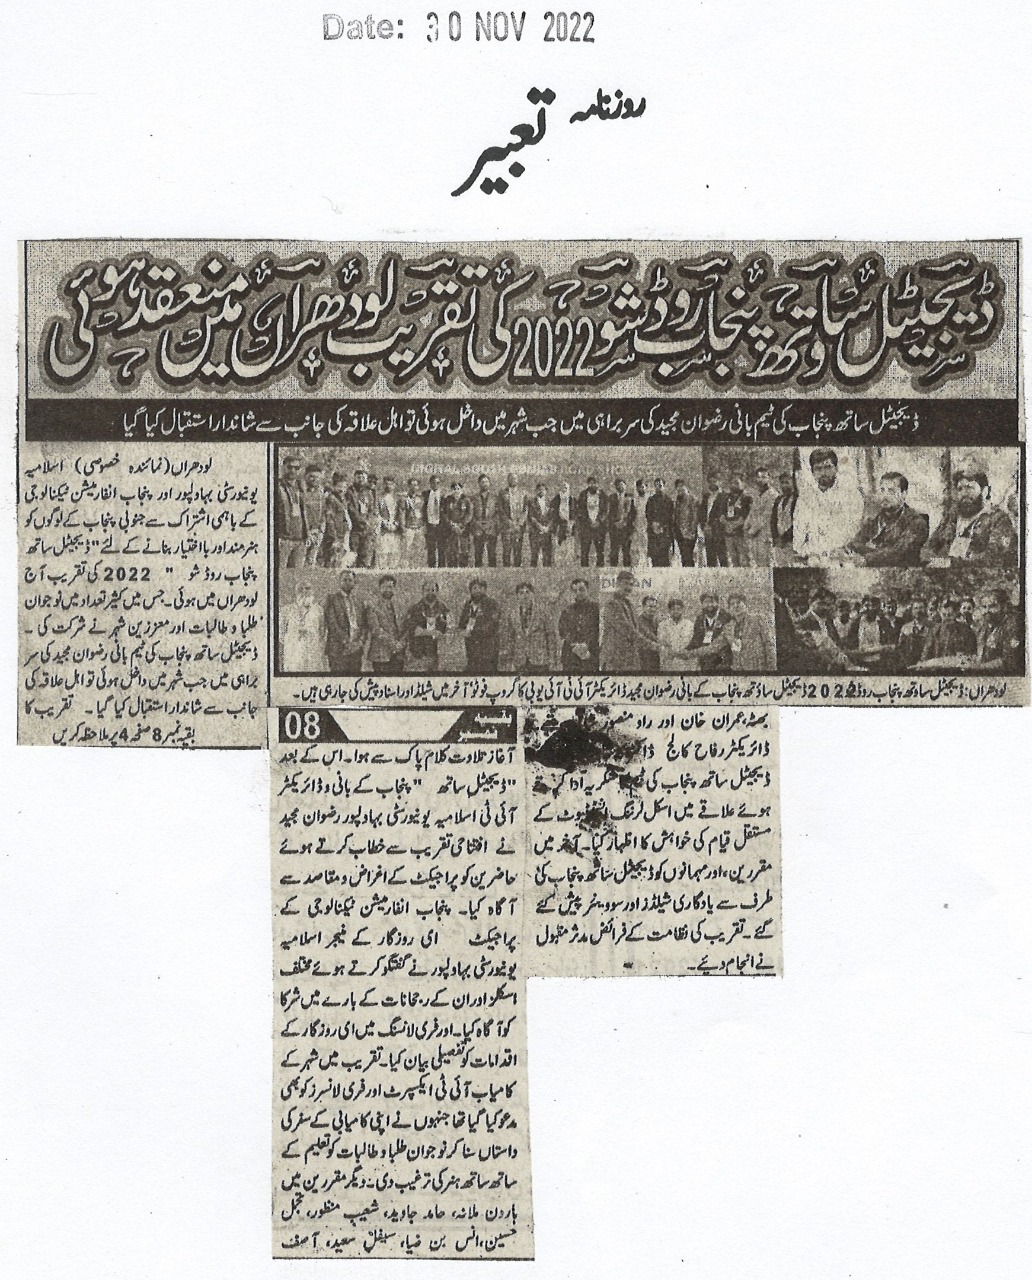 Date: 30 NOV 2022
روزنامہ تعبیر
ڈیجیٹل ساوتھ پنجاب روڈ شو 2022 کی تقریب لودھراں میں منعقد ہوئی
ڈیجیٹل ساتھ پنجاب کی ٹیم بانی رضوان مجید کی سربراہی میں جب شہر میں داخل ہوئی تو اہل علاقہ کی جانب سے شاندار استقبال کیا گیا
لودھراں (نمائندہ خصوصی) اسلامیہ
یونیورسٹی بہاولپور اور پنجاب انفارمیشن ٹیکنالوجی
کے باہمی اشتراک سے جنوبی پنجاب کے لوگوں کو
ہنرمند اور بااختیار بنانے کے لئے "ڈیجیٹل ساتھ
پنجاب روڈ شو " 2022 کی تقریب آج
لودھراں میں ہوئی۔ جس میں کثیر تعداد میں نوجوان
طلبا و طالبات اور معززین شہر نے شرکت کی۔
ڈیجیٹل ساتھ پنجاب کی ٹیم بانی رضوان مجید کی سر
براہی میں جب شہر میں داخل ہوئی تو اہل علاقہ کی
جانب سے شاندار استقبال کیا گیا۔ تقریب کا
بقیہ نمبر 8 صفحہ 4 پر ملاحظہ کریں
DIGITAL SOUTH PUNJAB ROAD SHOW
لودھراں: ڈیجیٹل ساؤتھ پنجاب روڈ 2022 ڈیجیٹل ساؤتھ پنجاب کے بانی رضوان مجید ڈائریکٹر آئی ٹی آئی یو بی کا گروپ فوٹو آخر میں شیلڈ اور اسناد پیش کی جارہی ہیں۔
بقیہ نمبر 08
آغاز تلاوت کلام پاک سے ہوا۔ اس کے بعد
"ڈیجیٹل ساتھ " پنجاب کے بانی و ڈائریکٹر
آئی ٹی اسلامیہ یونیورسٹی بہاولپور رضوان مجید
نے افتتاحی تقریب سے خطاب کرتے ہوئے
حاضرین کو پراجیکٹ کے اغراض و مقاصد سے
آگاہ کیا۔ پنجاب انفارمیشن ٹیکنالوجی کے
پراجیکٹ ای روزگار کے منیجر اسلامیہ
یونیورسٹی بہاولپور نے گفتگو کرتے ہوئے مختلف
اسکلز اور ان کے رجحانات کے بارے میں شرکا
کو آگاہ کیا۔ اور فری لانسنگ میں ای روزگار کے
اقدامات کو تفصیلی بیان کیا۔ تقریب میں شہر کے
کامیاب آئی ٹی ایکسپرٹ اور فری لانسرز کو بھی
مدعو کیا گیا تھا جنہوں نے اپنی کامیابی کے سفر کی
داستاں سنا کر نوجوان طلبا و طالبات کو تعلیم کے
ساتھ ساتھ ہنر کی ترغیب دی۔ دیگر مقررین میں
ہارون ملانہ، حامد جاوید، شعیب منظور، تجمل
حسین، انس بن ضیا، سیفل سعید، آصف
بھٹہ، عمران خان اور راو منصور
ڈائریکٹر رفاح کالج
ڈیجیٹل ساتھ پنجاب کی ٹیم کا شکریہ ادا کرتے
ہوئے علاقے میں اسکل لرننگ انسٹیٹیوٹ کے
مستقل قیام کی خواہش کا اظہار کیا۔ آخر میں
مقررین، اور مہمانوں کو ڈیجیٹل ساتھ پنجاب کی
طرف سے یادگاری شیلڈز اور سووینئر پیش کئے
گئے۔ تقریب کی نظامت کے فرائض مدثر مقبول
نے انجام دئیے۔